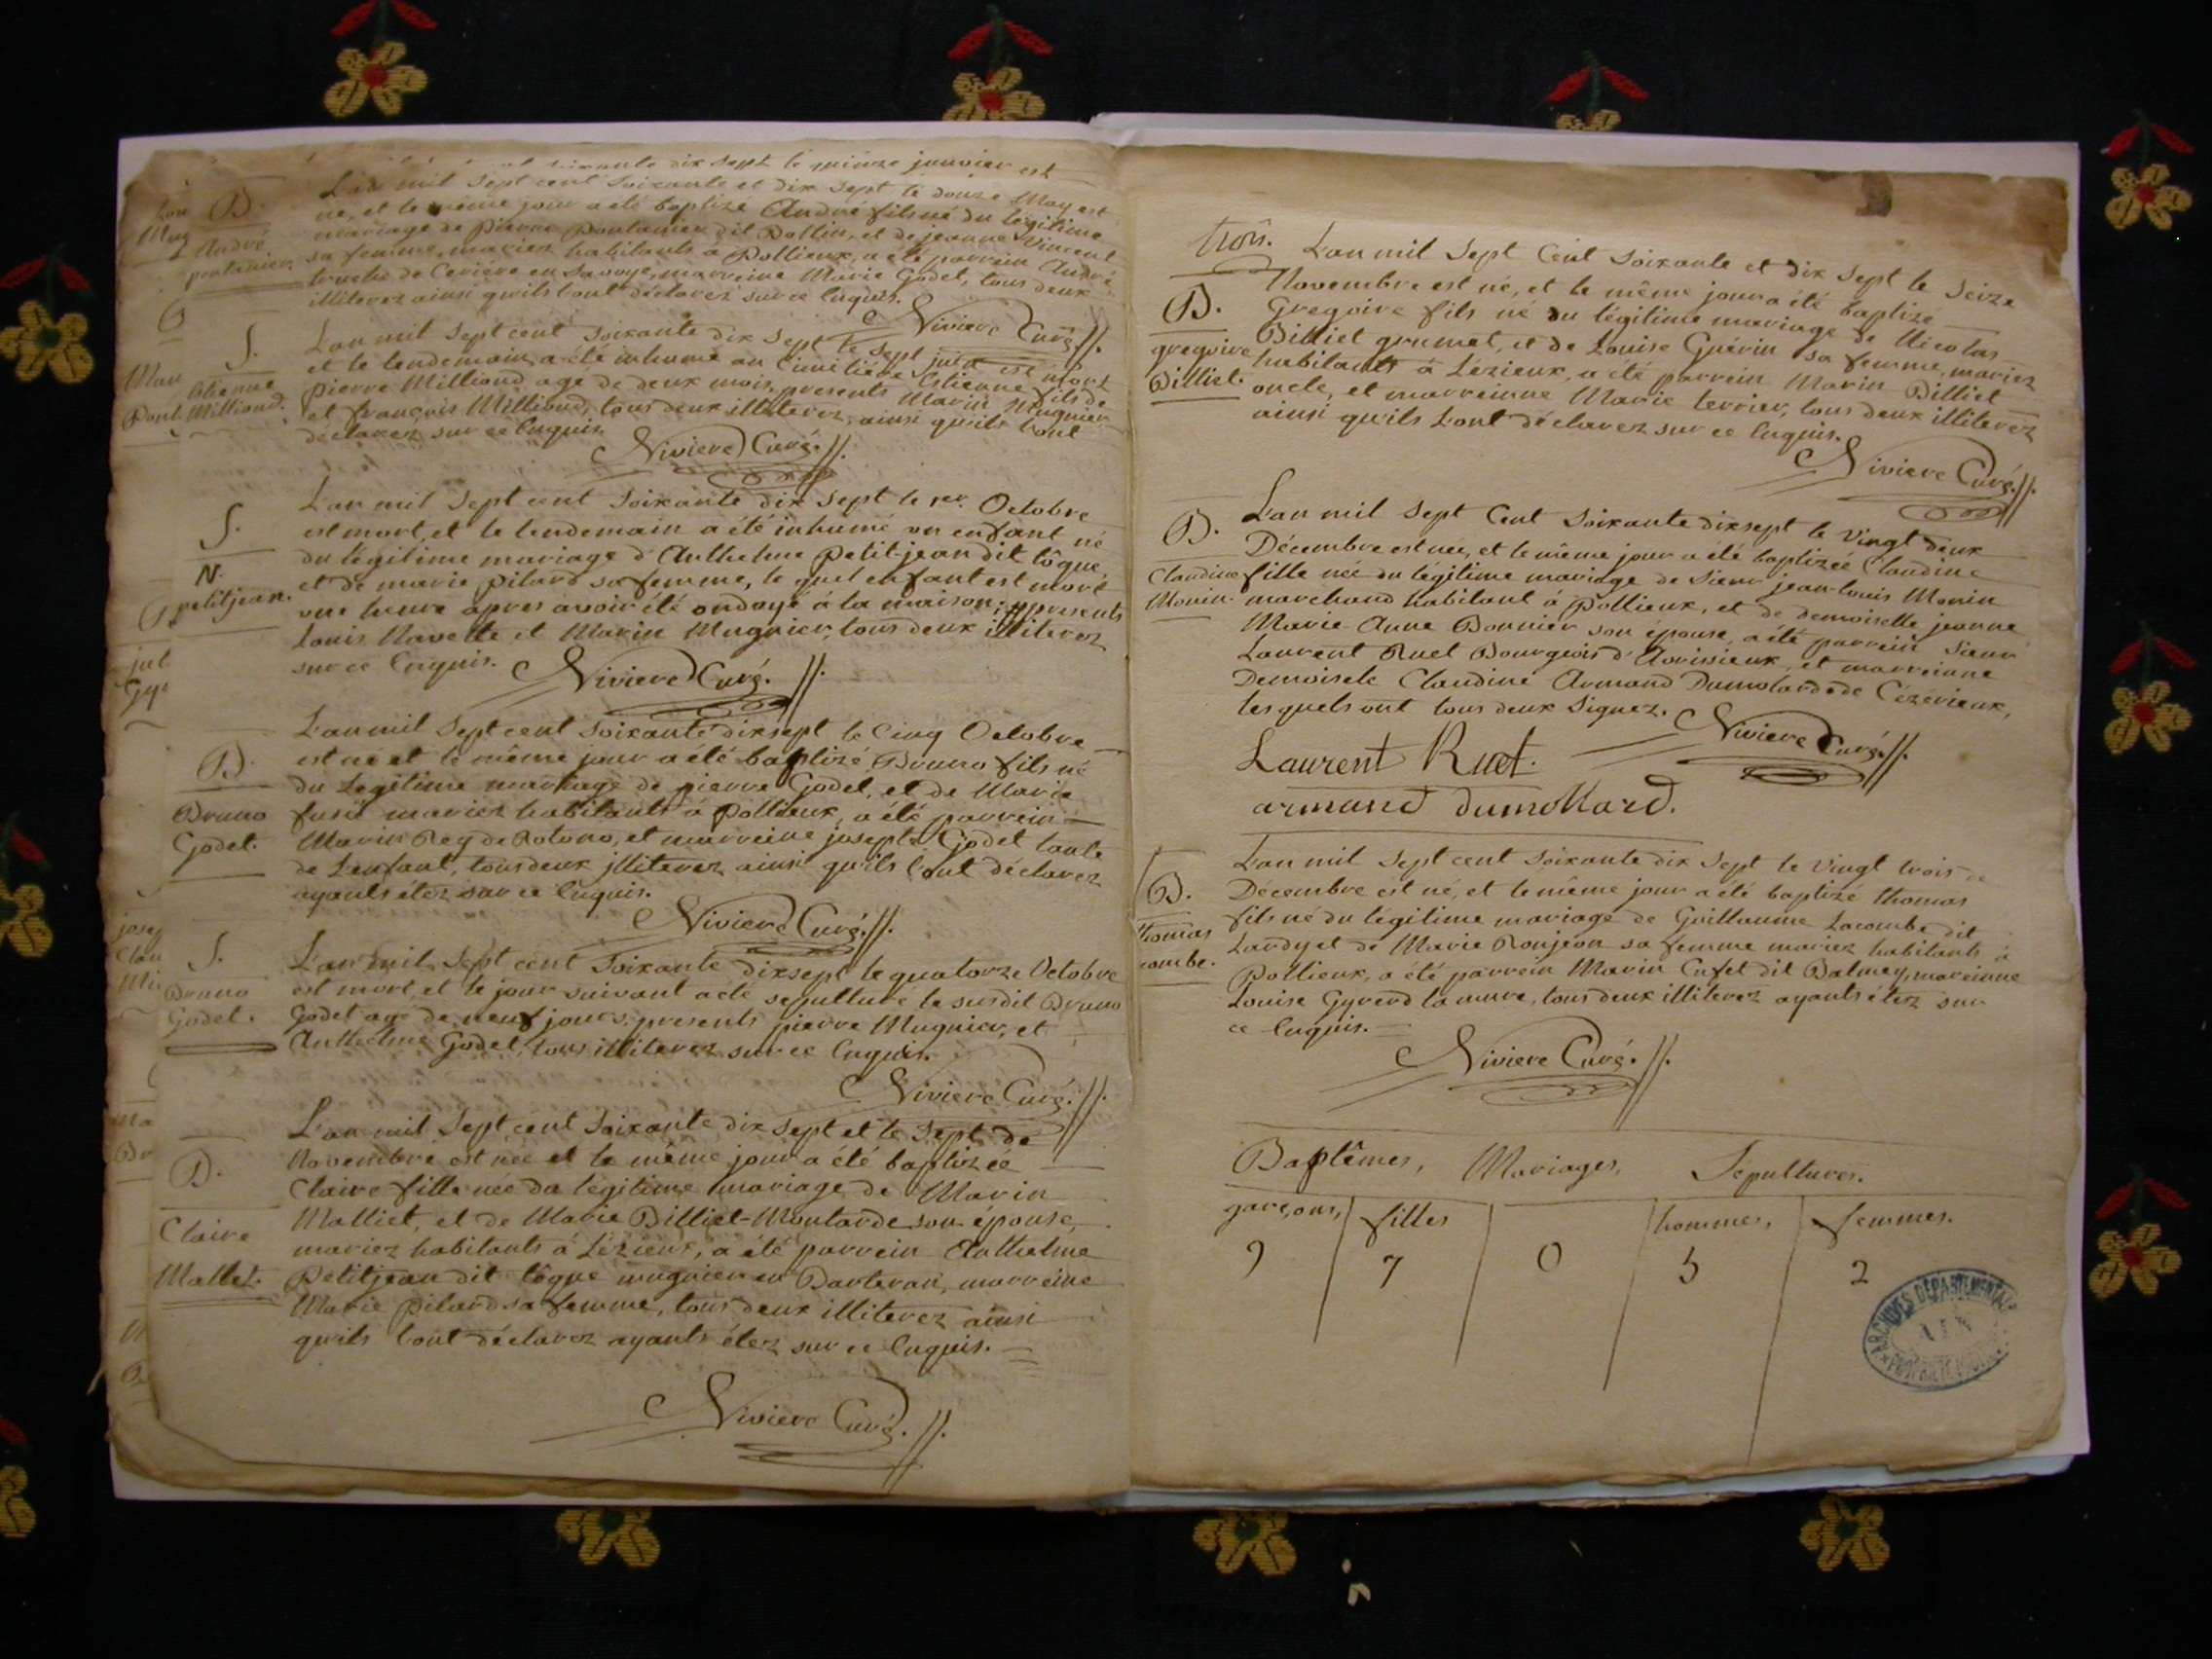 dix sept le quinze janvier est
L'an mil sept cent soixante et dix sept le douze May est
né, et le même jour a été baptizé André fils né du légitime
mariage de pierre pontanier dit Pollin, et de jeanne Vincent
sa femme, mariez habitants à Pollieux, a été parrein André
truchi de Cerière en Savoye, marreine Marie Godet, tous deux
illiterez ainsi qu'ils l'ont déclarez sur ce Enquis.
B.
André
pontanier.
Niviere Curé.
L'an mil sept cent soixante dix sept le sept juin est mort
et le lendemain a été inhumé au cimetière Estienne fils de
pierre Milliond agé de deux mois, presents Marin Mugnier
et françois Milliond, tous deux illiterez, ainsi qu'ils l'ont
déclarez sur ce Enquis.
S.
Estienne
Milliond.
Niviere Curé.
L'an mil sept cent soixante dix sept le 1er. Octobre
est mort, et le lendemain a été inhumé un enfant né
du légitime mariage d'Anthelme petit-jean dit tôgue
et de marie pilard sa femme, le quel enfant est mort
une heure apres avoir été ondoyé à la maison, presents
Louis Navette et Marin Mugnier, tous deux illiterez
sur ce Enquis.
S.
N.
petitjean.
Niviere Curé.
L'an mil sept cent soixante dixsept le Cinq Octobre
est né et le même jour a été baptizé Bruno fils né
du Legitime mariage de pierre Godet, et de Marie
fusil mariez habitants à Pollieux, a été parrein
Marin Rey de Rotono, et marreine josepte Godet tante
de L'enfant, tous deux illiterez ainsi qu'ils l'ont déclarez
ayants étez sur ce Enquis.
B.
Bruno
Godet.
Niviere Curé.
L'an mil sept cent soixante dixsept le quatorze Octobre
est mort, et le jour suivant a été sepulturé le susdit Bruno
Godet agé de neuf jours, presents pierre Mugnier, et
Anthelme Godet, tous illiterez sur ce Enquis.
S.
Bruno
Godet.
Niviere Curé.
L'an mil sept cent soixante dix sept et le sept de
Novembre est née et le même jour a été baptizée
Claire fille née du légitime mariage de Marin
Malliet, et de Marie Billiet-Moutarde son épouse,
mariez habitants à Lézieux, a été parrein Anthelme
Petitjean dit tôgue mugnier en Barteran, marreine
Marie pilard sa femme, tous deux illiterez ainsi
qu'ils l'ont déclarez ayants étez sur ce Enquis.
B.
Claire
Mallet.
Niviere Curé.
trois.
L'an mil sept Cent soixante et dix sept le seize
Novembre est né, et le même jour a été baptizé
Gregoire fils né du légitime mariage de Nicolas
Billiet grumet, et de Louise Guérin sa femme, mariez
habitants à Lézieux, a été parrein Marin Billiet
oncle, et marreinne Marie terrier, tous deux illiterez
ainsi qu'ils L'ont déclarez sur ce Enquis.
B.
gregoire
Billiet.
Niviere Curé.
L'an mil sept Cent soixante dixsept le Vingt deux
Décembre est née, et le même jour a été baptizée Claudine
fille née du légitime mariage de sieur jean-louis Monin
marchand habitant à Pollieux, et de demoiselle jeanne
Marie-Anne Bonnier son épouse, a été parrein sieur
Laurent Ruet Bourgeois d'Avrissieux, et marreinne
Demoiselle Claudine Armand Dumolard de Cézérieux,
lesquels ont tous deux signez.
B.
Claudine
Monin.
Niviere Curé.
Laurent Ruet.
armand dumollard.
L'an mil sept cent soixante dix sept le vingt trois
Décembre est né, et le même jour a été baptizé thomas
fils né du légitime mariage de Guillaume Lacombe dit
Lardy et de Marie Ronjeon sa femme mariez habitants à
Pollieux, a été parrein Marin Cufet dit Balmey, mareinne
Louise Gyrerd la mure, tous deux illiterez ayants étez sur
ce Enquis.
B.
thomas
combe.
Niviere Curé.
Baptêmes, Mariages, Sepultures.
garçons, filles hommes, femmes.
9 7 0 5 2
ARCHIVES DÉPARTEMENTALES